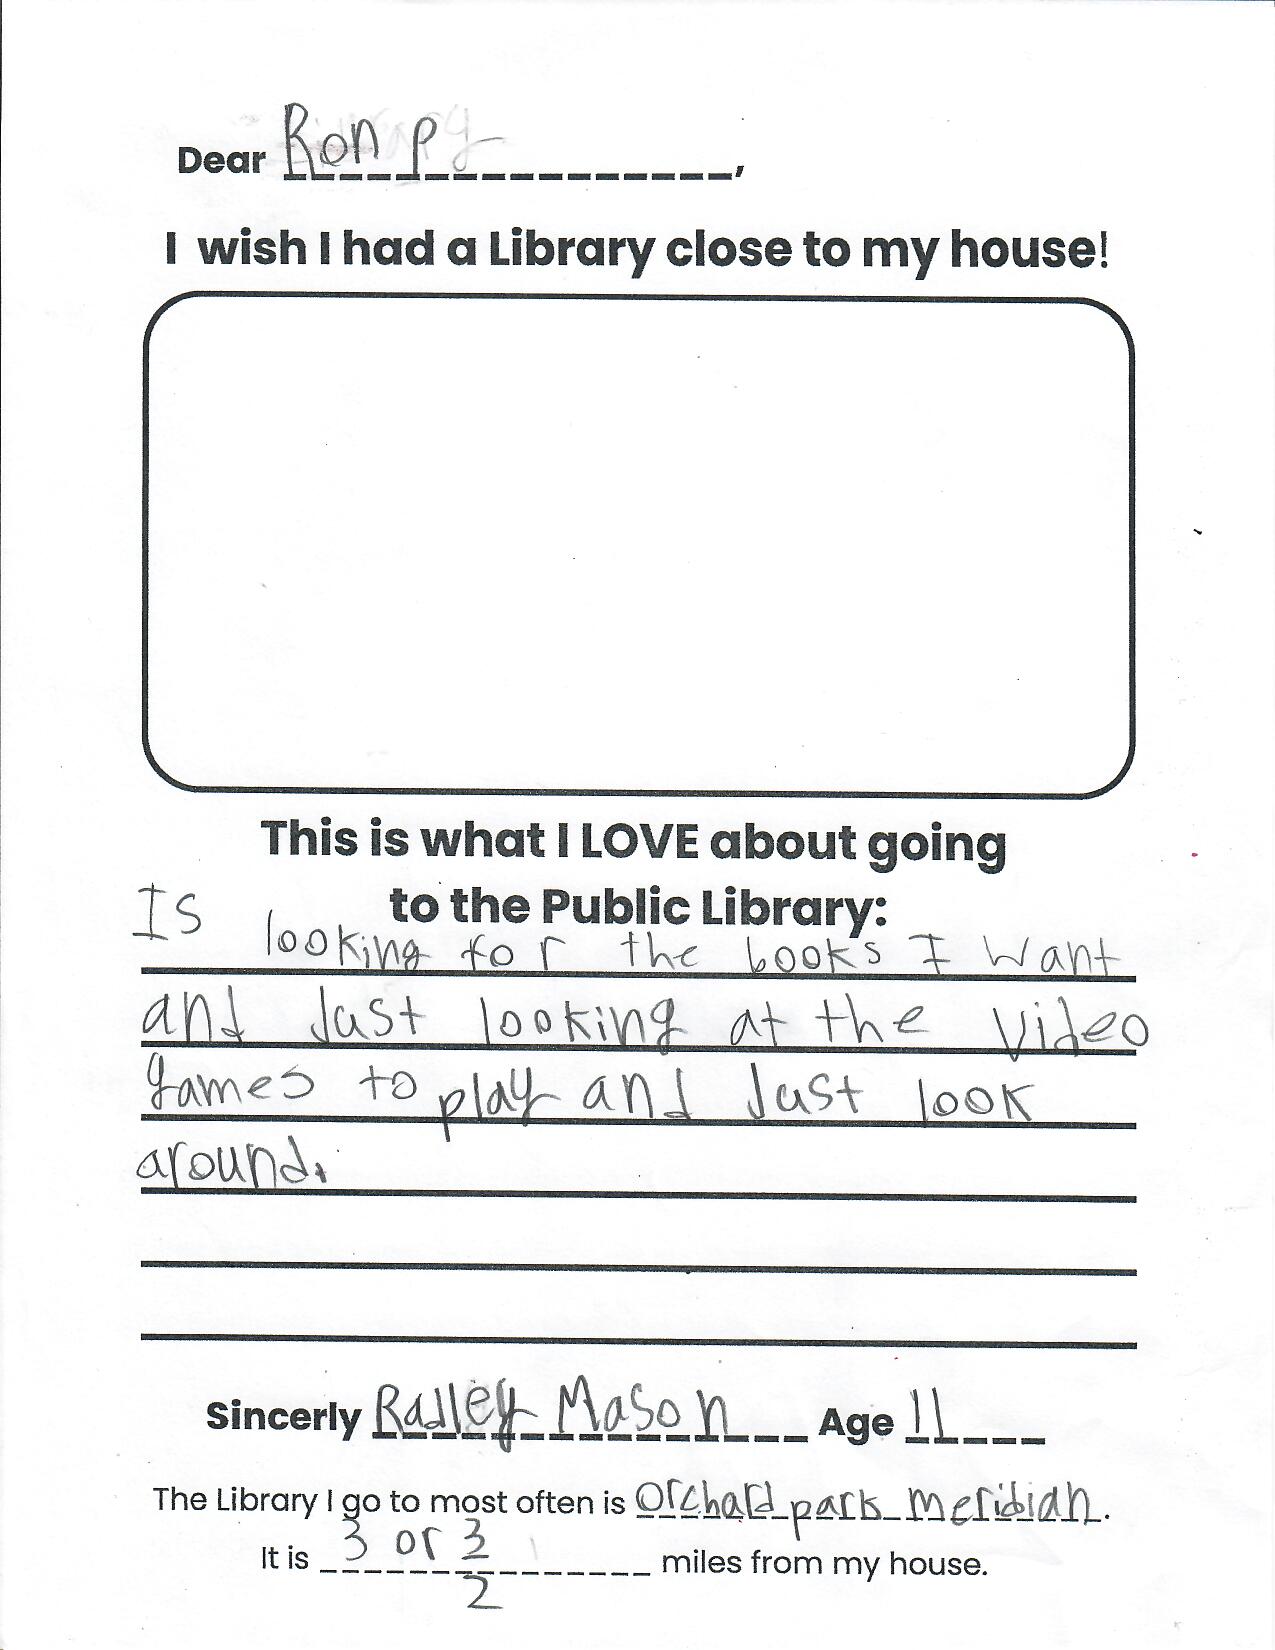 Dear Ron P,
I wish I had a Library close to my house!
This is what I LOVE about going
to the Public Library:
Is looking for the books I want
and Just looking at the video
games to play and Just look
around.
Sincerly Radley Mason Age 11
The Library I go to most often is orchard park meridian.
It is 3 or 3/2 miles from my house.